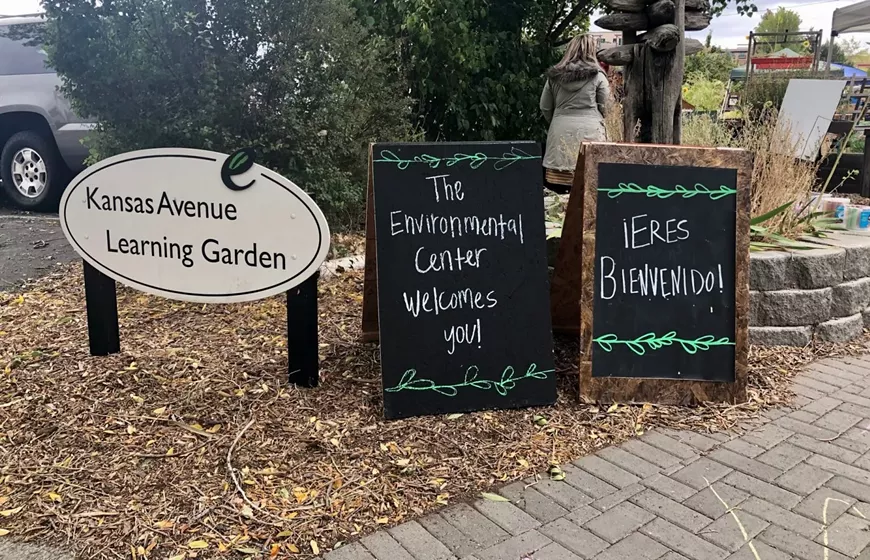 Kansas Avenue
Learning Garden
The
Environmental
Center
Welcomes
you!
¡Eres
Bienvenido!